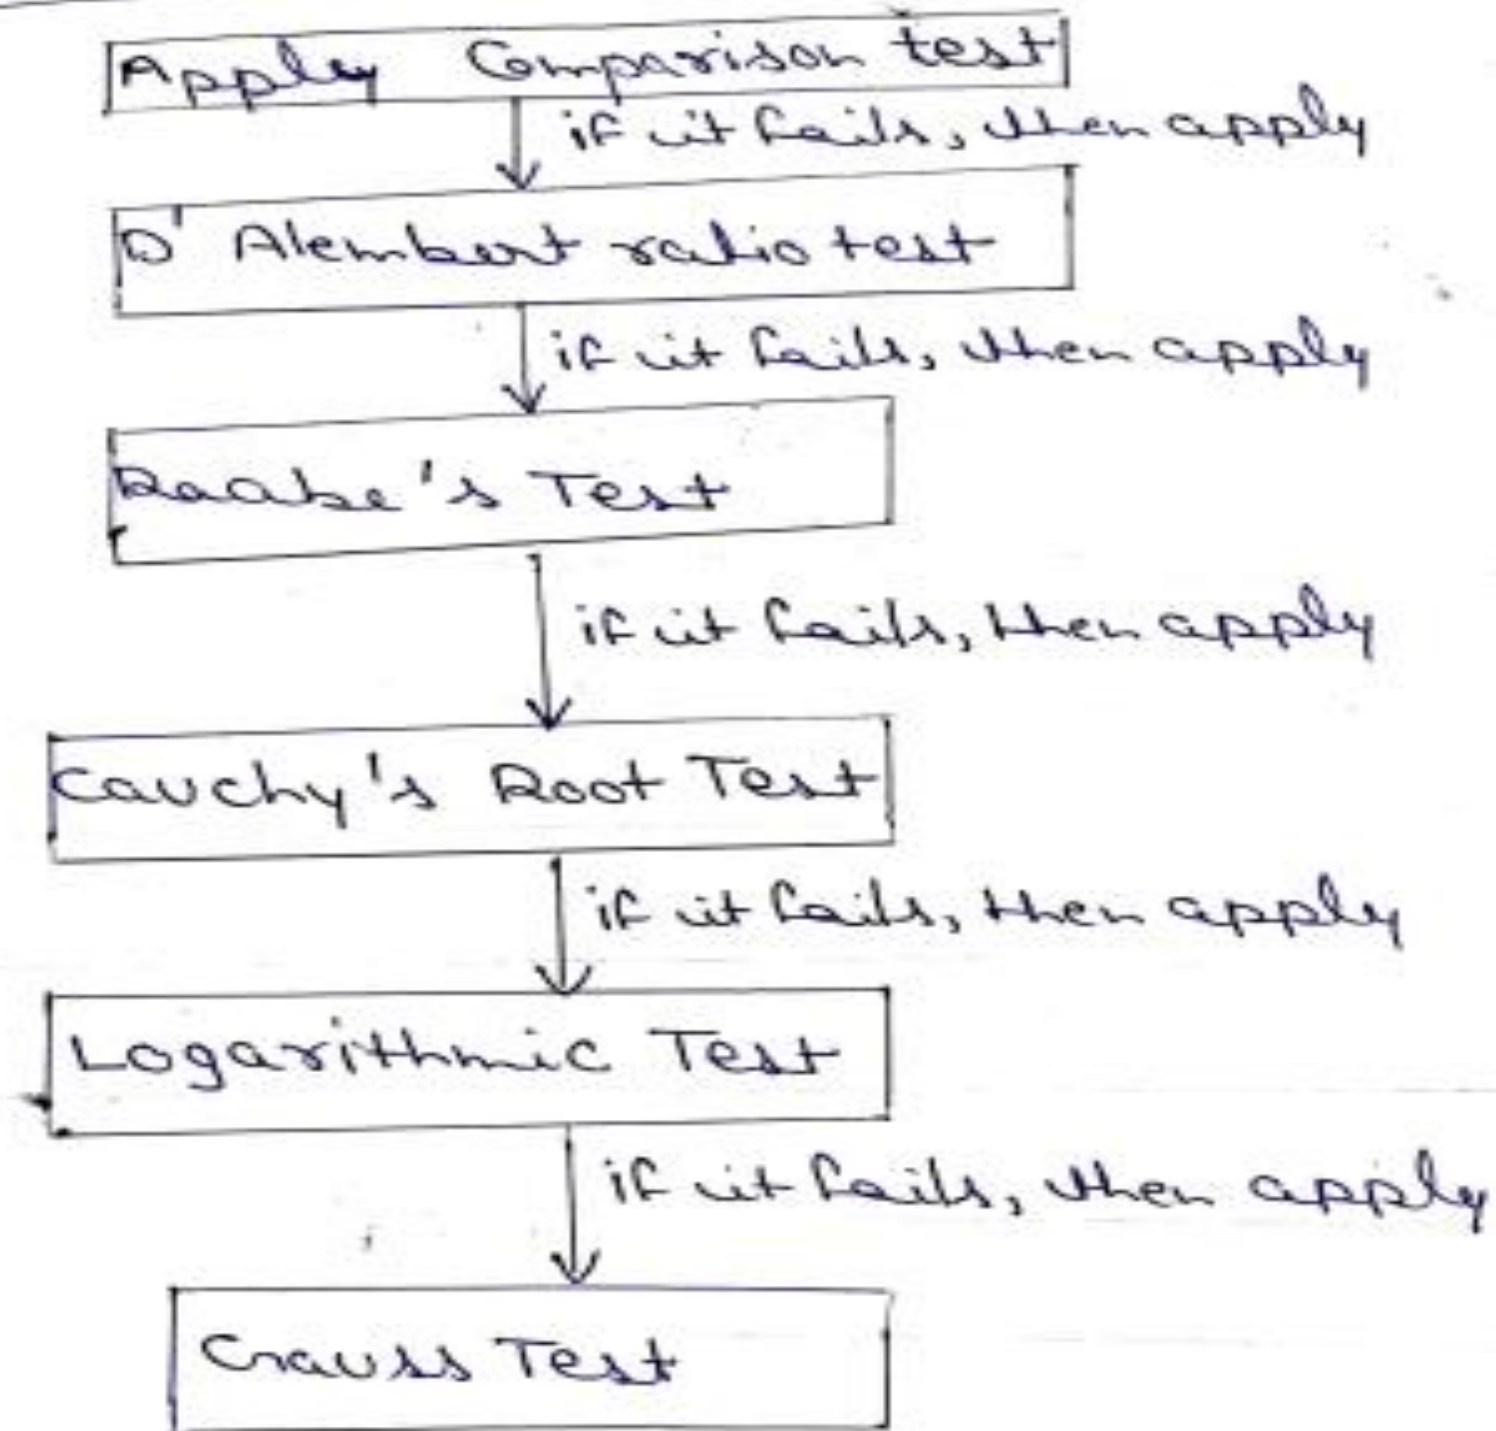 Apply Comparison test
if it fails, then apply
D' Alembert ratio test
if it fails, then apply
Raabe's Test
if it fails, then apply
Cauchy's Root Test
if it fails, then apply
Logarithmic Test
if it fails, then apply
Gauss Test